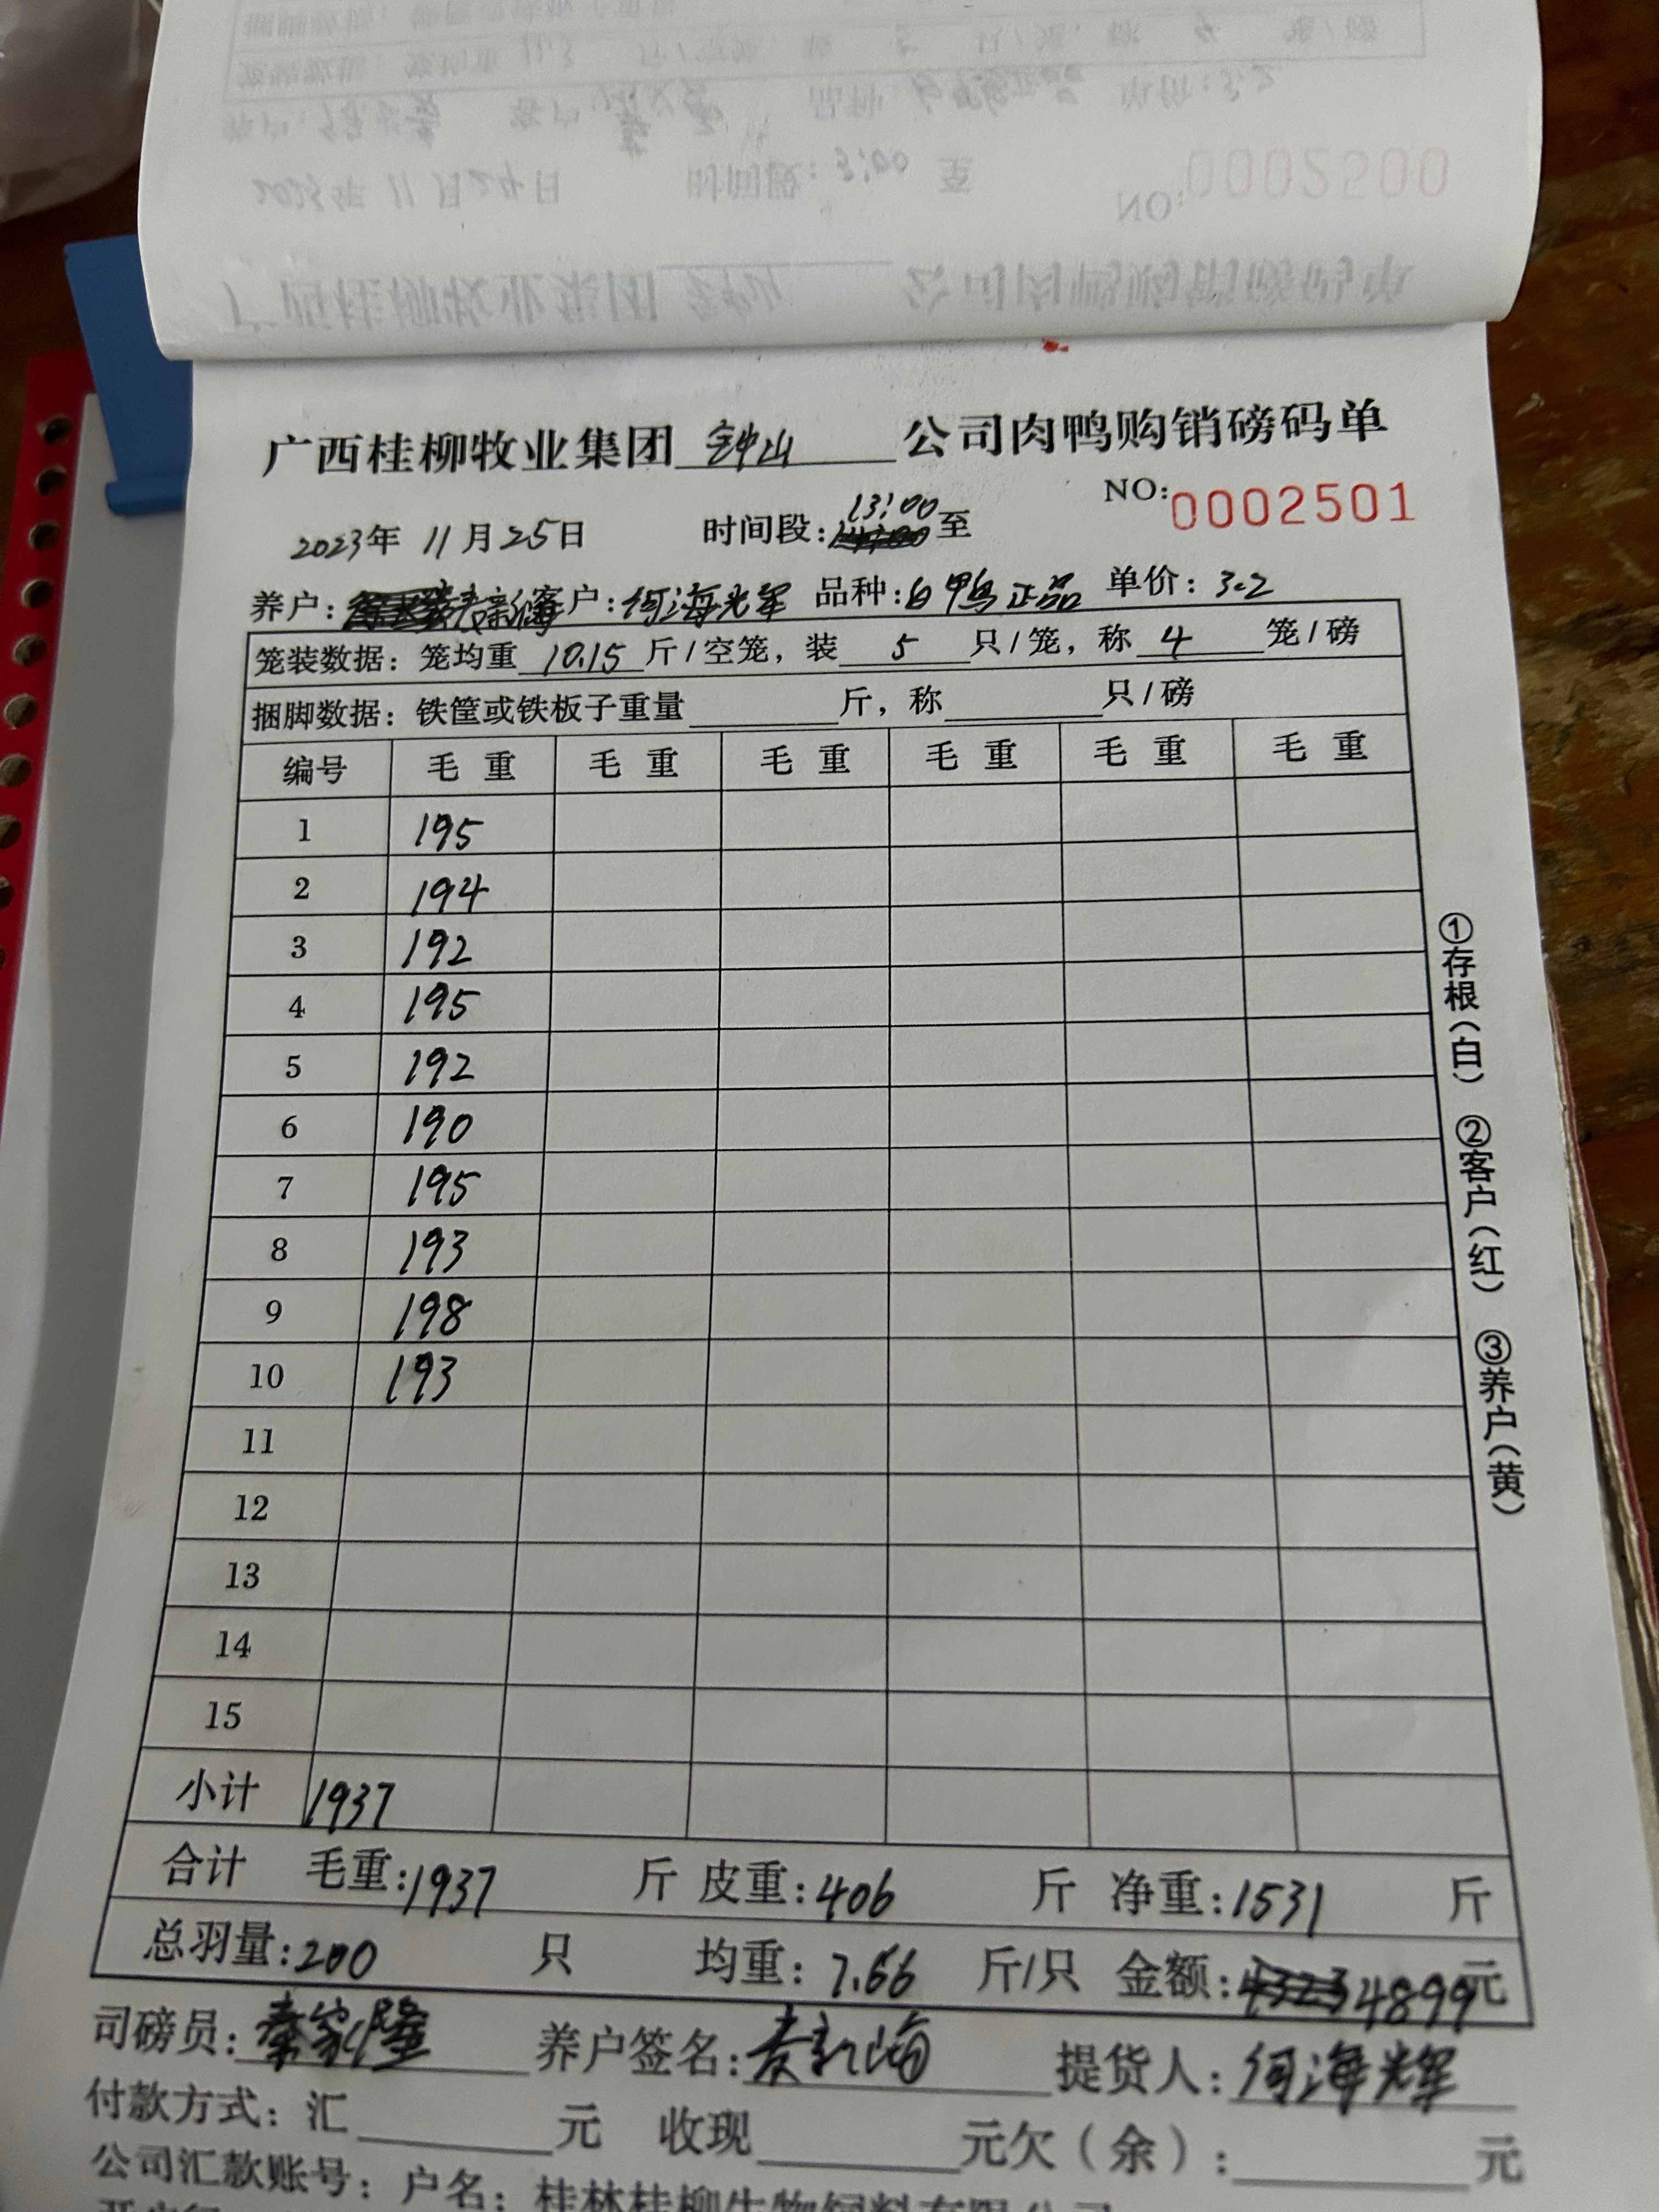 NO: 0002500
广西桂柳牧业集团 钟山 公司肉鸭购销磅码单
NO: 0002501
2023年 11月25日 时间段: 13:00 至
养户: 客户: 何海光军 品种: 白鸭正品 单价: 3.2
笼装数据: 笼均重 10.15 斤/空笼, 装 5 只/笼, 称 4 笼/磅
捆脚数据: 铁筐或铁板子重量 斤, 称 只/磅
编号 毛重 毛重 毛重 毛重 毛重 毛重
1 195
2 194
3 192
4 195
5 192
6 190
7 195
8 193
9 198
10 193
11
12
13
14
15
小计 1937
合计 毛重: 1937 斤 皮重: 406 斤 净重: 1531 斤
总羽量: 200 只 均重: 7.66 斤/只 金额: 4899元
司磅员: 秦家隆 养户签名: 提货人: 何海辉
付款方式: 汇 元 收现 元 欠(余): 元
公司汇款账号: 户名: 桂林桂柳生物饲料有限公司
①存根(白) ②客户(红) ③养户(黄)